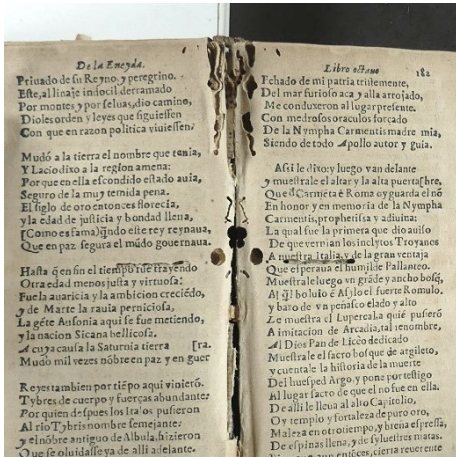 De la Eneyda.
Priuado de su Reyno, y peregrino.
Este, al linaje indocil derramado
Por montes, y por seluas, dio camino,
Dioles orden y leyes que siguiessen
Con que en razon politica viuiessen:
Mudó a la tierra el nombre que tenia,
Y Lacio dixo a la region amena:
Porque en ella escondido estado auia,
Seguro de la muy temida pena.
El siglo de oro entonces florecia,
y la edad de justicia y bondad llena,
[Como es fama] q̃ndo este rey reynaua,
Que en paz segura el mũdo gouernaua.
Hasta q̃ en fin el tiempo fue trayendo
Otra edad menos justa y virtuosa:
Fue la auaricia y la ambicion creciẽdo,
y de Marte la rauia perniciosa,
La gẽte Ausonia aqui se fue metiendo,
y la nacion Sicana bellicosa.
A cuya causa la Saturnia tierra [ra.
Mudó mil vezes nõbre en paz y en guer
Reyes tambien por tiẽpo aqui vinierõ.
Tybres de cuerpo y fuerças abundante:
Por quien despues los Italos pusieron
Al rio Tybris nombre semejante:
y el nõbre antiguo de Albula, hizieron
Que se oluidasse ya de alli adelante.
Libro octauo 182
Echado de mi patria tristemente,
Del mar furioso aca y alla arrojado,
Me conduxeron al lugar presente.
Con medrosos oraculos forçado
De la Nympha Carmentis madre mia,
Siendo de todo Apollo autor y guia.
Assi le dixo: y luego van delante
y muestrale el altar y la alta puerta
Que d̃ Carmẽta è Roma oy guarda el nõ [bre,
En honor y en memoria de la Nympha
Carmentis, prophetissa y adiuina:
La qual fue la primera que dio auiso
De que vernian los inclytos Troyanos
A nuestra Italia, y de la gran ventaja
Que esperaua el humilde Pallanteo.
Muestrale luego vn grãde y ancho bosq̃,
Al q̃l boluio ẽ Asylo el fuerte Romulo.
y baxo de vn peñasco elado y alto
Le muestra el Lupercal, a quiẽ pusierõ
A imitacion de Arcadia, tal renombre,
Al Dios Pan de Liceo dedicado
Muestrale el sacro bosque de argileto,
y cuentale la historia de la muerte
Del huesped Argo, y pone por testigo
Al lugar sacro de que el no fue en ella.
De alli le lleua al alto Capitolio,
Oy templo y fortaleza de puro oro,
Maleza en otro tiempo, y breña espessa,
De espinas llena, y de syluestres matas.
entõces, cierta reuerente